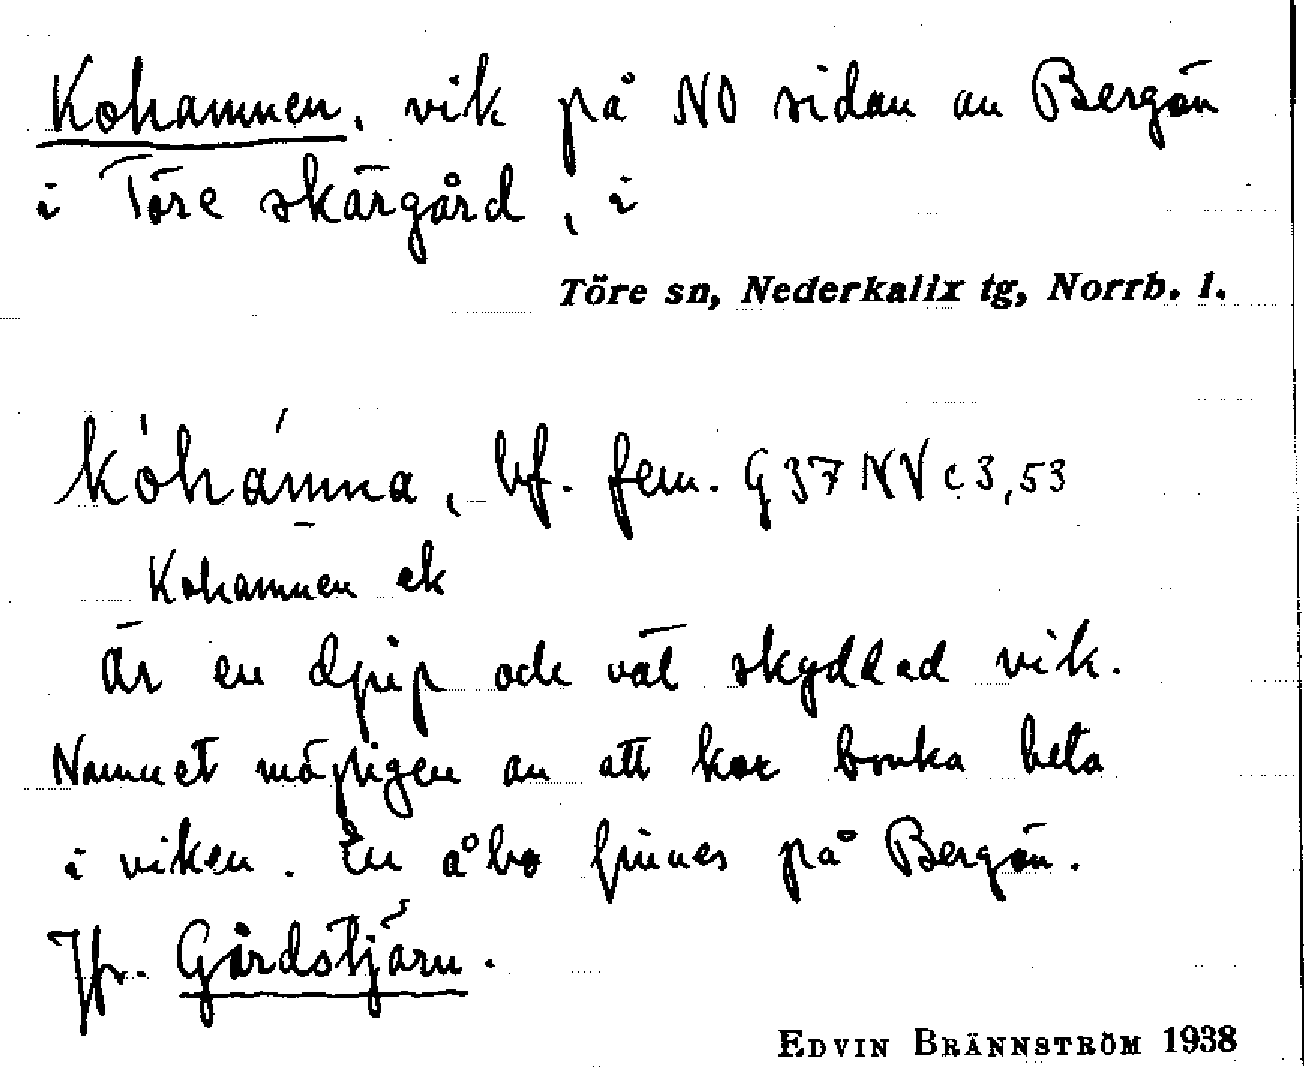 Kohamnen, vik på NO sidan av Bergön
i Töre skärgård, i
Töre sn, Nederkalix tg, Norrb. l.
kòhámna, bf. fem. G 37 NV c 3, 53
Kohamnen ek
är en djup och väl skyddad vik.
Namnet möjligen av att kor bruka beta
i viken. En åbo finnes på Bergön.
Jfr. Gårdstjärn.
EDVIN BRÄNNSTRÖM 1938